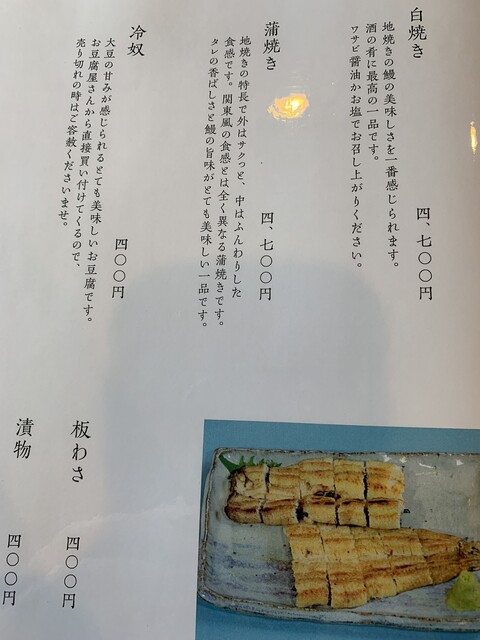 白焼き
四、七〇〇円
地焼きの鰻の美味しさを一番感じられます。
酒の肴に最高の一品です。
ワサビ醤油かお塩でお召し上がりください。
蒲焼き
四、七〇〇円
地焼きの特長で外はサクっと、中はふんわりした
食感です。関東風の食感とは全く異なる蒲焼きです。
タレの香ばしさと鰻の旨味がとても美味しい一品です。
冷奴
四〇〇円
大豆の甘みが感じられるとても美味しいお豆腐です。
お豆腐屋さんから直接買い付けてくるので、
売り切れの時はご容赦くださいませ。
板わさ
四〇〇円
漬物
四〇〇円